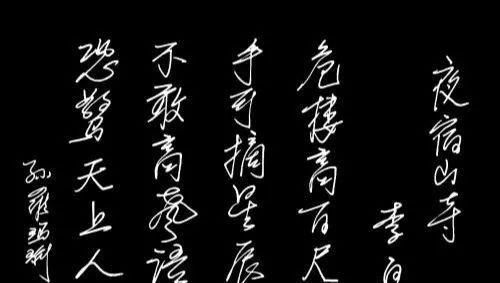 夜宿山寺
李白
危楼高百尺
手可摘星辰
不敢高声语
恐驚天上人
孙